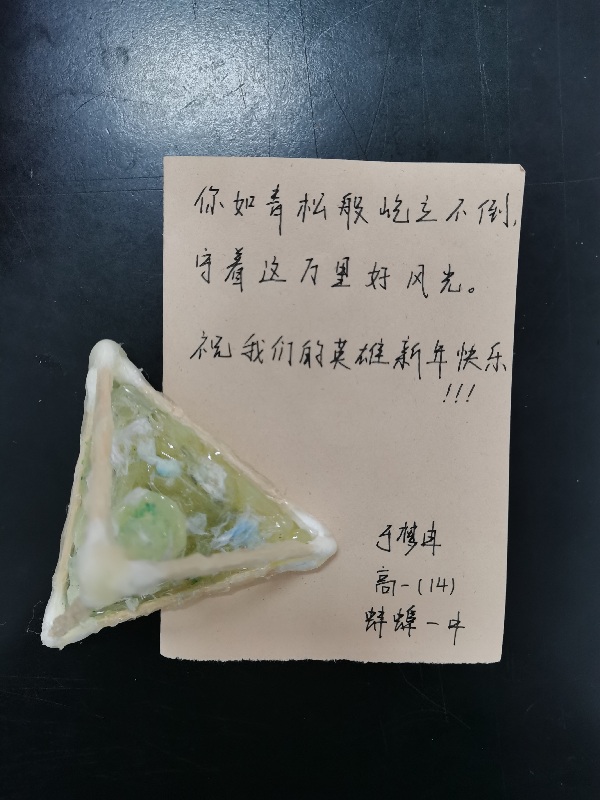 你如青松般屹立不倒,
守着这万里好风光。
祝我们的英雄新年快乐
!!!
于梦冉
高一(14)
蚌埠一中